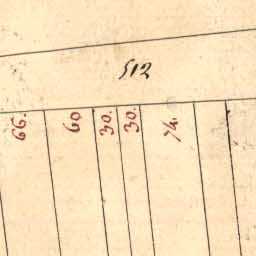 512
66.
60
30.
30.
74.